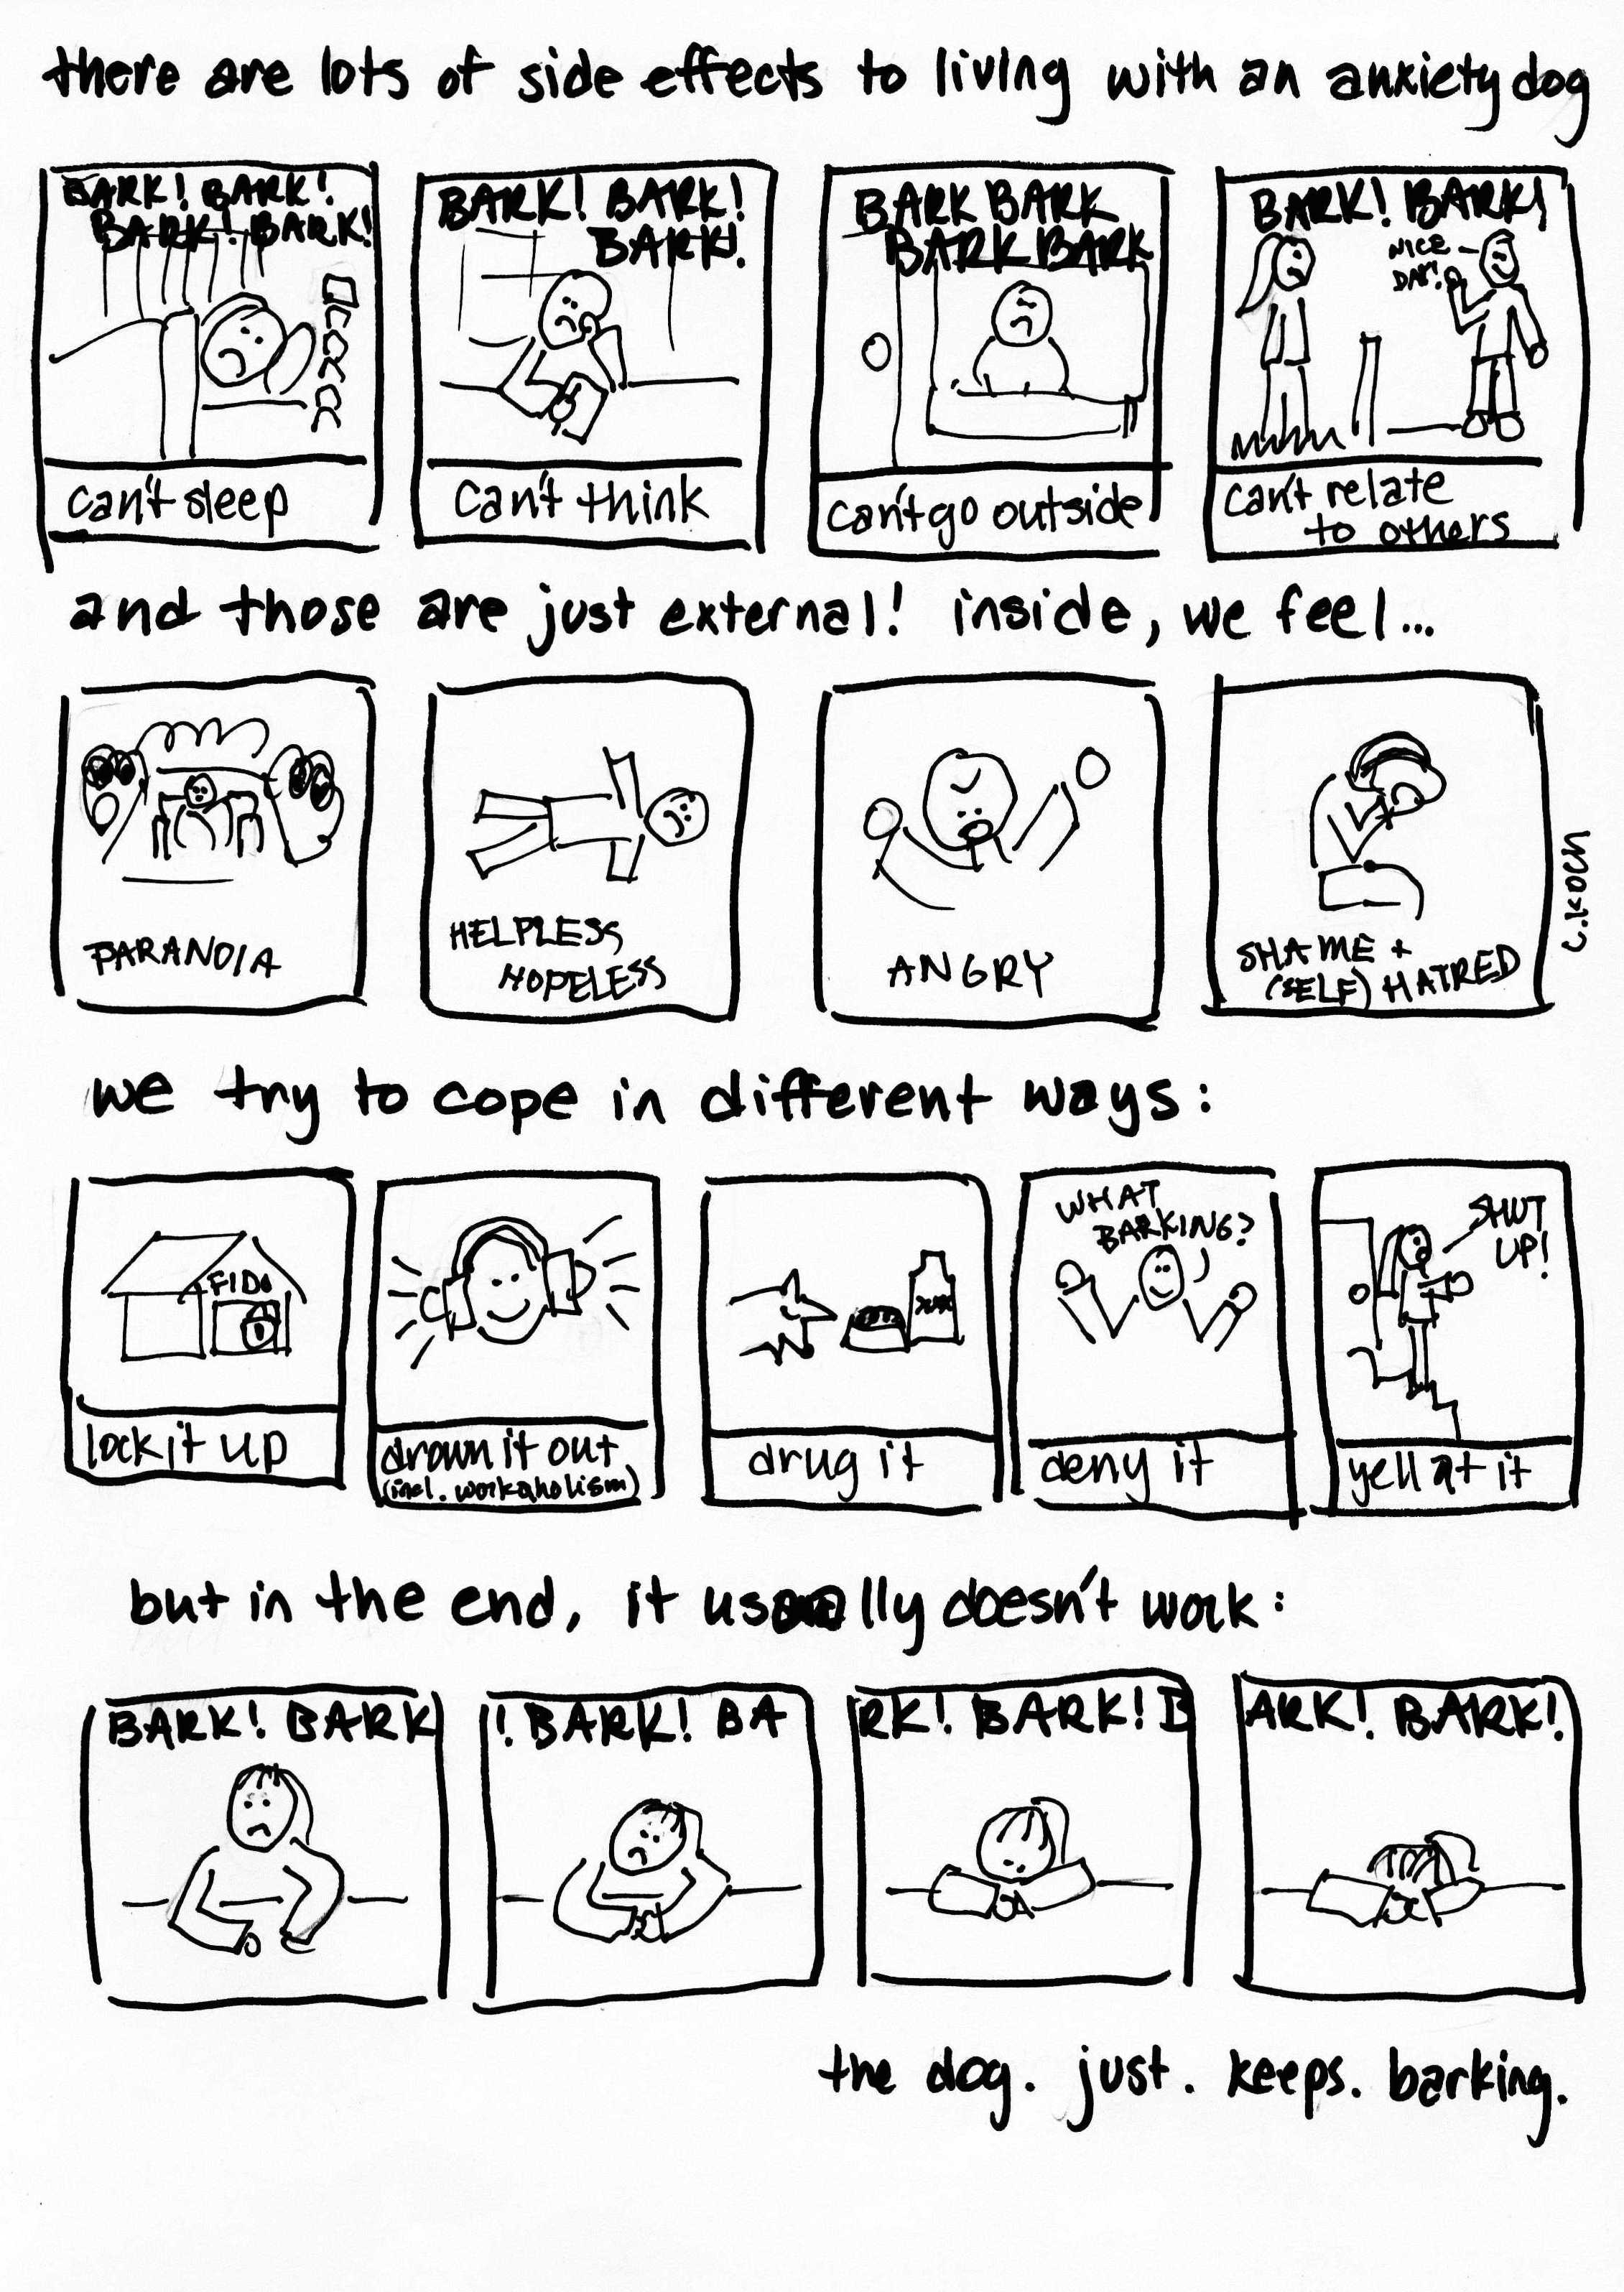 there are lots of side effects to living with an anxiety dog
BARK! BARK!
BARK! BARK!
can't sleep
BARK! BARK!
BARK!
can't think
BARK BARK
BARK BARK
can't go outside
BARK! BARK!
NICE
DAY!
can't relate
to others
and those are just external! inside, we feel...
PARANOIA
HELPLESS
HOPELESS
ANGRY
SHAME +
(SELF) HATRED
c.koch
we try to cope in different ways:
FIDO
lock it up
drown it out
(incl. workaholism)
XXX
drug it
WHAT
BARKING?
deny it
SHUT
UP!
yell at it
but in the end, it usually doesn't work:
BARK! BARK
! BARK! BA
RK! BARK! B
ARK! BARK!
the dog. just. keeps. barking.